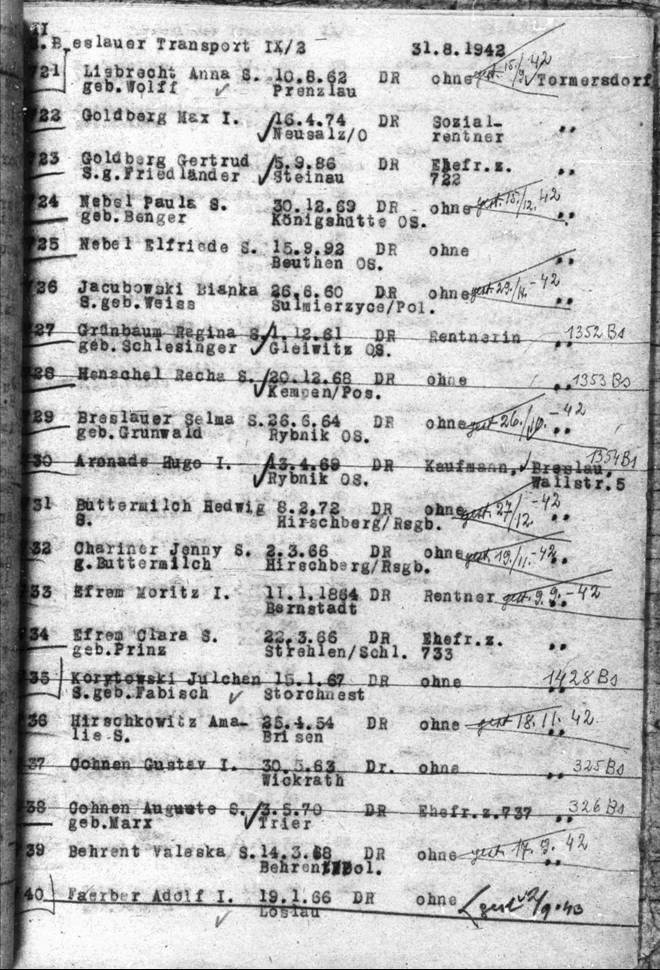 II
Breslauer Transport IX/2 31.8.1942
721 Liebrecht Anna S. 10.8.62 DR ohne gest. 15./9. 42 Tormersdorf
geb.Wolff Prenzlau
722 Goldberg Max I. 16.4.74 DR Sozial- ,,
Neusalz/O rentner
723 Goldberg Gertrud 5.9.86 DR Ehefr.z. ,,
S.g.Friedländer Steinau 722
724 Nebel Paula S. 30.12.69 DR ohne gest. 15./12. 42
geb.Benger Königshütte OS. ,,
725 Nebel Elfriede S. 15.9.92 DR ohne
Beuthen OS. ,,
726 Jacubowski Bianka 26.6.60 DR ohne gest. 29./11. -42
S.geb.Weiss Sulmierzyce/Pol. ,,
27 Grünbaum Regina S. 1.12.61 DR Rentnerin ,, 1352 Bs
geb.Schlesinger Gleiwitz OS.
28 Henschel Recha S. 20.12.68 DR ohne ,, 1353 Bs
Kempen/Pos.
29 Breslauer Selma S. 26.6.64 DR ohne gest 26./10. -42
geb.Grunwald Rybnik OS. ,,
30 Aronade Hugo I. 13.4.69 DR Kaufmann, Breslau, 1354 Bs
Rybnik OS. Wallstr.5
31 Buttermilch Hedwig 8.2.72 DR ohne gest. 27/12. -42
S. Hirschberg/Rsgb. ,,
32 Chariner Jenny S. 2.3.66 DR ohne gest. 19./11. -42
g.Buttermilch Hirschberg/Rsgb. ,,
33 Efrem Moritz I. 11.1.1864 DR Rentner gest. 9.9. -42
Bernstadt
34 Efrem Clara S. 22.3.66 DR Ehefr.z. ,,
geb.Prinz Strehlen/Schl. 733
35 Korytowski Julchen 15.1.67 DR ohne 1428 Bs
S.geb.Fabisch Storchnest ,,
36 Hirschkowitz Ama- 25.4.54 DR ohne gest 18.11. 42
lie S. Brisen ,,
37 Cohnen Gustav I. 30.5.63 Dr. ohne ,, 325 Bs
Wickrath
38 Cohnen Auguste S. 3.5.70 DR Ehefr.z.737 ,, 326 Bs
geb.Marx Trier
39 Behrent Valeska S. 14.3.68 DR ohne gest. 17.9. 42
Behrent Pol. ,,
40 Faerber Adolf I. 19.1.66 DR ohne gest /9.43
Loslau